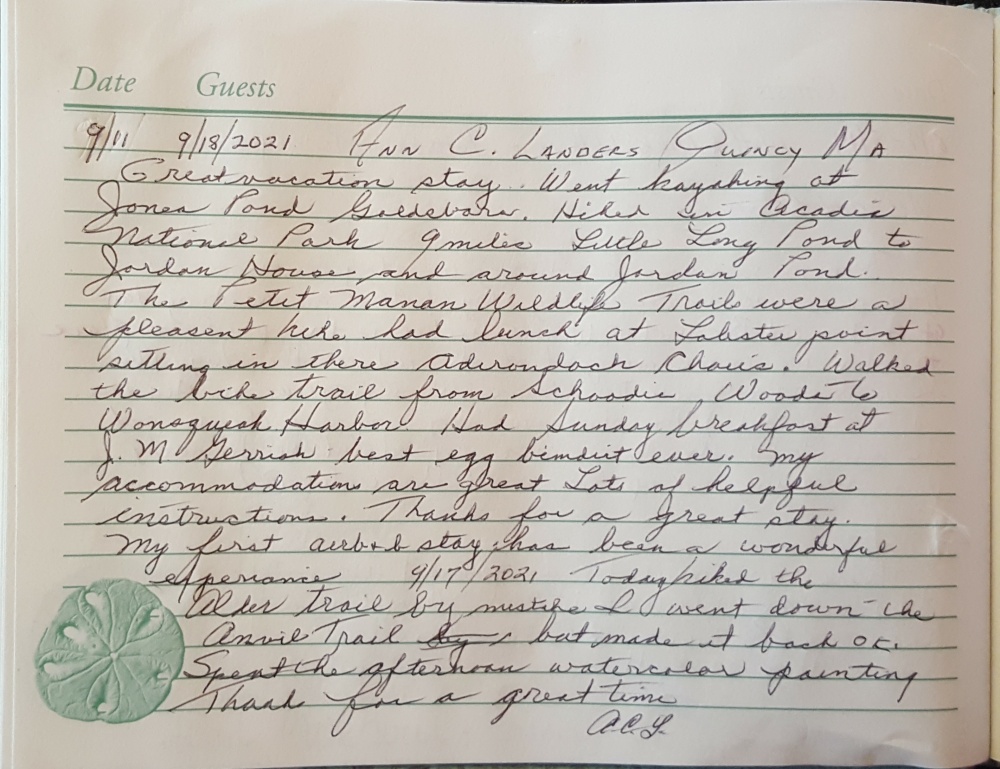 Date Guests
9/11 9/18/2021 Ann C. Landers Quincy Ma
Great vacation stay. Went kayaking at
Jones Pond Goldsboro. Hiked in Acadia
National Park 9 miles Little Long Pond to
Jordan House and around Jordan Pond.
The Petit Manan Wildlife Trails were a
pleasent hike had lunch at Lobster point
sitting in there Adirondack Chairs. Walked
the bike trail from Schoodic Woods to
Wonsqueak Harbor. Had Sunday breakfast at
J. M Gerrish best egg bendict ever. My
accommodations are great Lots of helpful
instructions. Thanks for a great stay.
My first airb+b stay has been a wonderful
experiance 9/17/2021 Today hiked the
Alder trail by mistake I went down the
Anvil Trail but made it back OK.
Spent the afternoon watercolor painting
Thank for a great time
A.C.L.